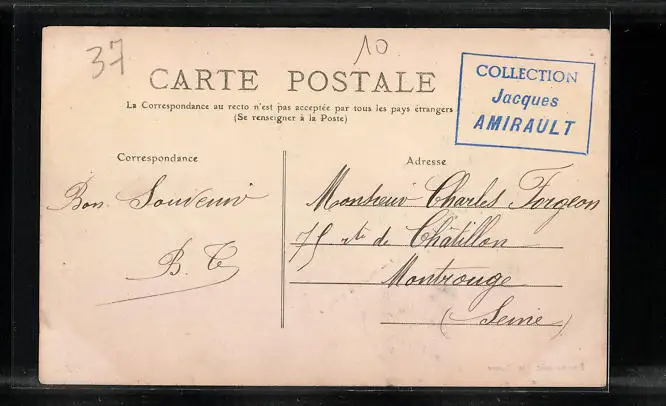 37
10
CARTE POSTALE
La Correspondance au recto n'est pas acceptée par tous les pays étrangers
(Se renseigner à la Poste)
COLLECTION
Jacques
AMIRAULT
Correspondance
Bon Souvenir
B. T
Adresse
Monsieur Charles Forgeon
75 rte de Châtillon
Montrouge
(Seine)